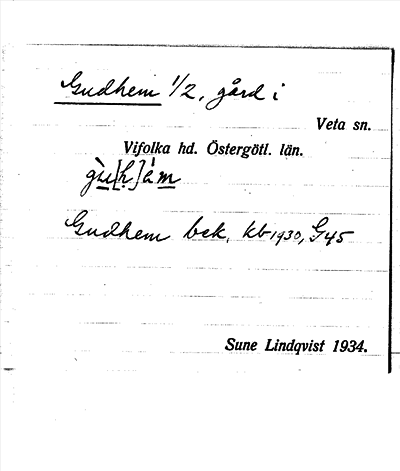 Gudhem 1/2, gård i
Veta sn.
Vifolka hd. Östergötl. län.
gù[h]ám
Gudhem bek. kb 1930, G45
Sune Lindqvist 1934.